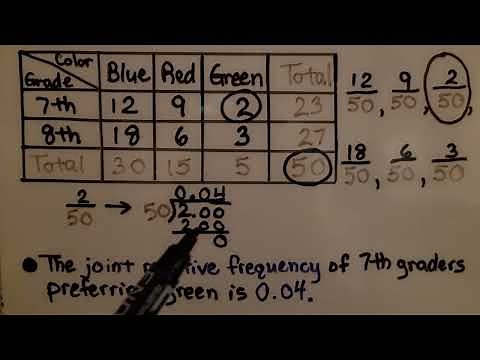 Color
Grade Blue Red Green Total
7th 12 9 2 23
8th 18 6 3 27
Total 30 15 5 50
12/50, 9/50, 2/50,
18/50, 6/50, 3/50
2/50 → 50)2.00 0.04
2.00
0
• The joint frequency of 7th graders
green is 0.04.